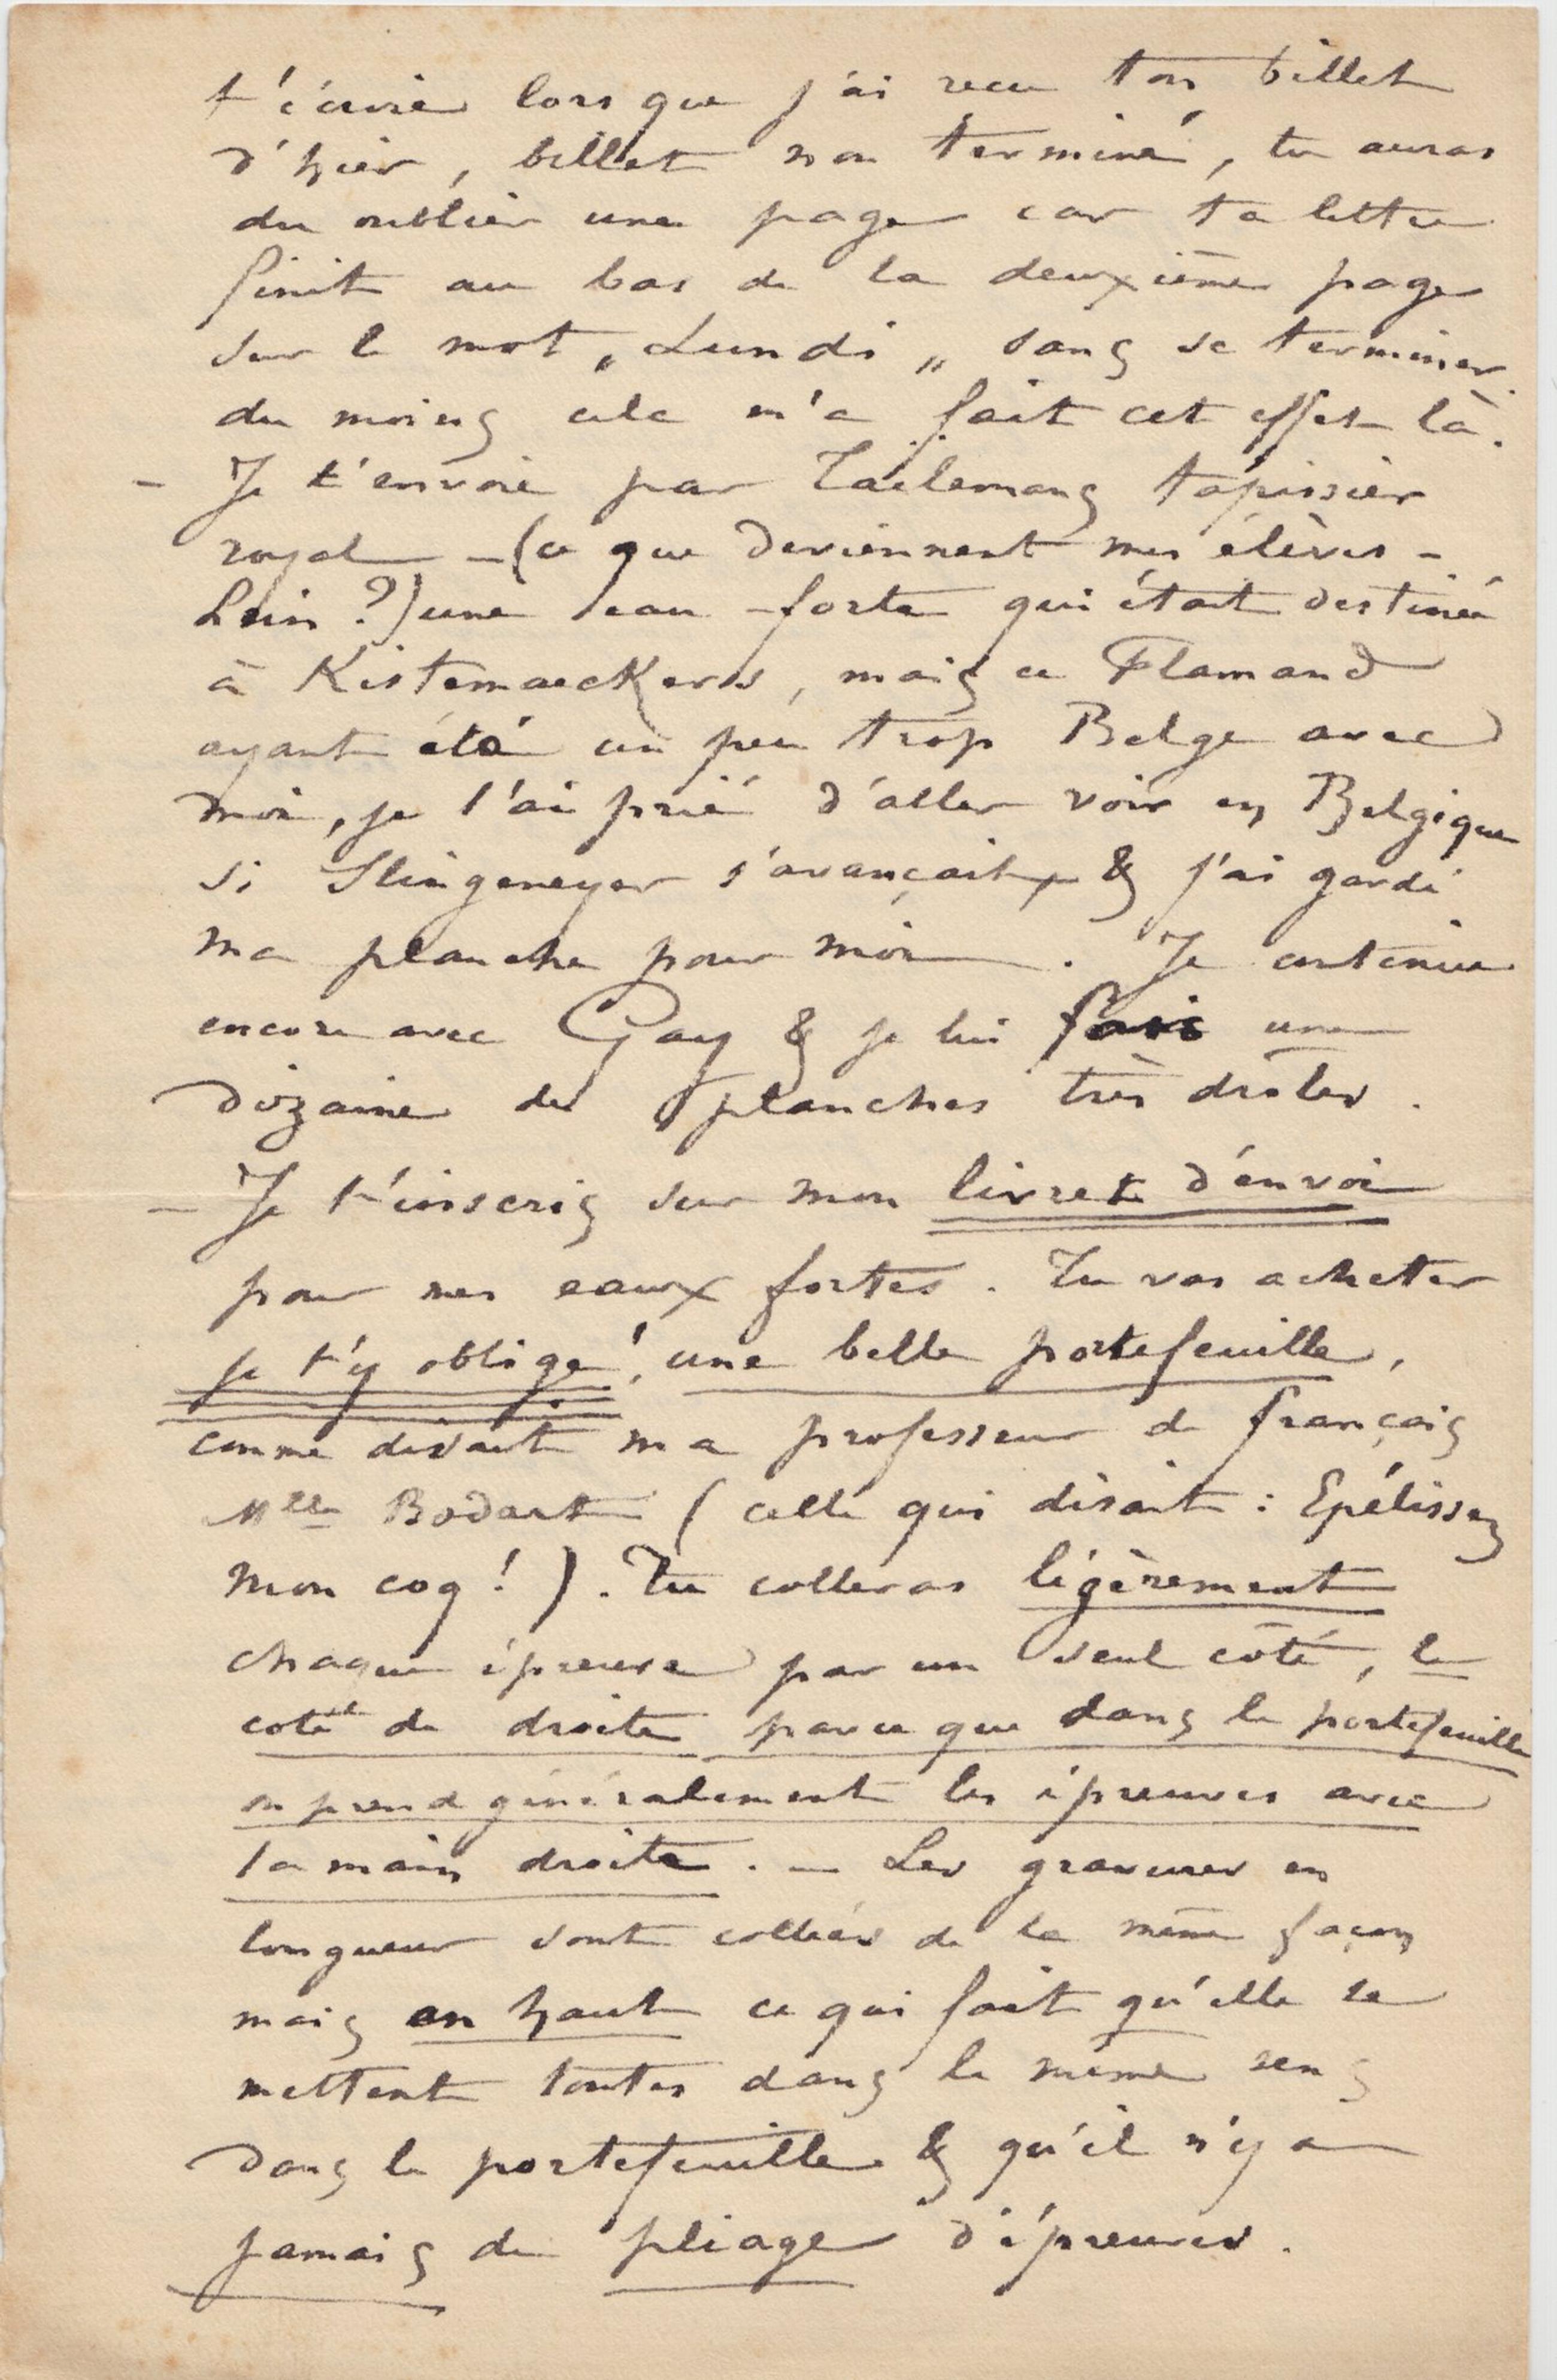 t'écrire lorsque j'ai reçu ton billet
d'hier, billet non terminé, tu auras
du oublier une page car ta lettre
finit au bas de la deuxième page
sur le mot „Lundi„ sans se terminer.
du moins cela m'a fait cet effet là.
– Je t'envoie par Taelemans tapissier
royal – (ce que deviennent mes élèves –
hein ?) une eau-forte qui était destinée
à Kistemaeckers, mais ce Flamand
ayant été un peu trop Belge avec
moi, je l'ai prié d'aller voir en Belgique
si Slingeneyer s'avançait & j'ai gardé
ma planche pour moi. Je continue
encore avec Gay & je lui fais une
dizaine de planches très drôles.
– Je t'inscris sur mon livret d'envoi
pour mes eaux fortes. Tu vas acheter
je t'y oblige!, une belle portefeuille,
comme disait ma professeur de français
Mlle Bodart (celle qui disait : Epélissez
mon coq !). Tu colleras légèrement
chaque épreuve par un seul côté, le
coté de droite parce que dans le portefeuille
on prend généralement les épreuves avec
la main droite. – Les gravures en
longueur sont collées de la même façon
mais en haut ce qui fait qu'elle se
mettent toutes dans le même sens
dans le portefeuille & qu'il n'y a
jamais de pliage d'épreuves.